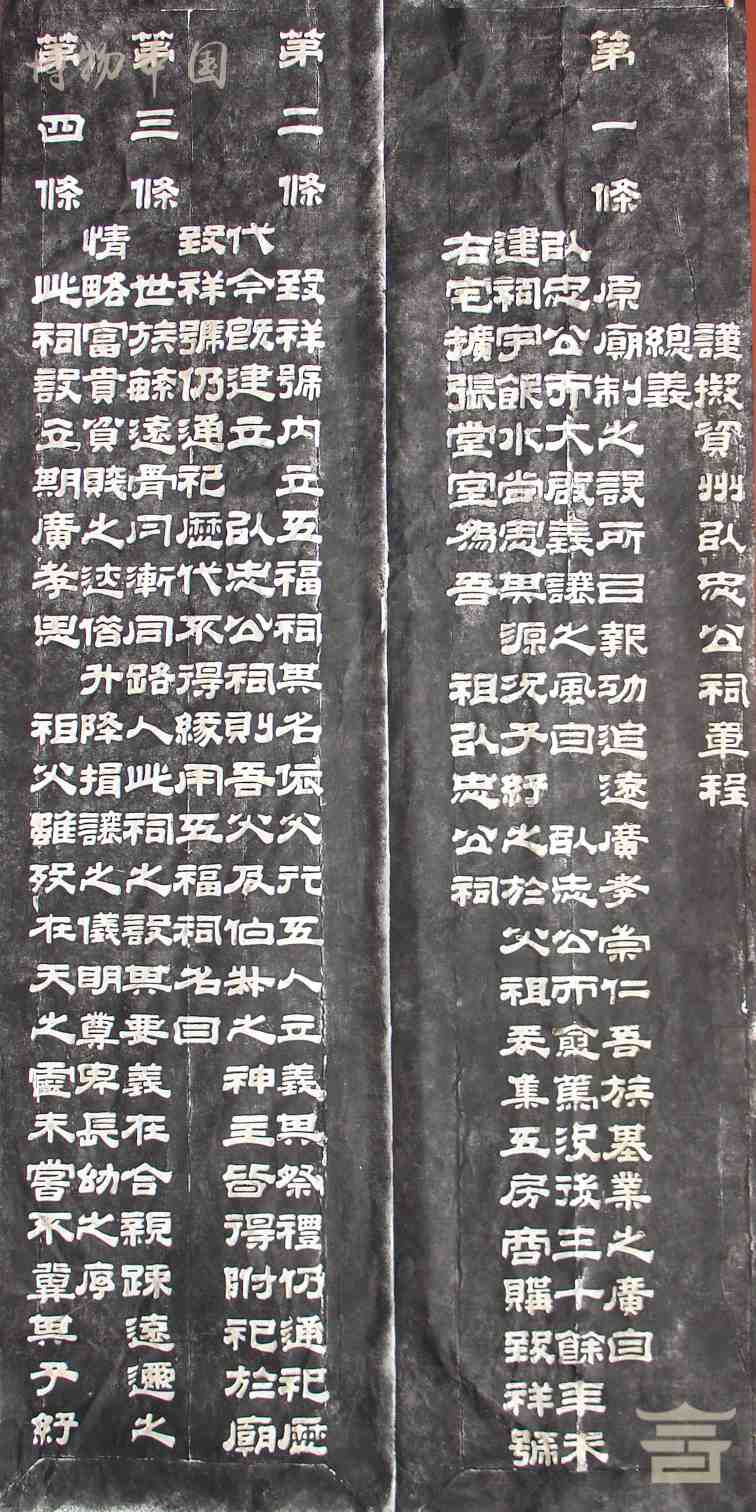 謹擬資州臥忠公祠章程
總義
第一條 原廟制之設所㠯報功追遠廣孝崇仁吾族基業之廣自
臥忠公而大啟義讓之風自 臥忠公而愈篤沒後三十餘年未
建祠宇飲水尚思其源況子孫之於父祖爰集五房商購致祥號
右宅擴張堂室為吾 祖臥忠公祠
第二條 致祥號內立五福祠其名依父行五人立義其祭禮仍通祀歷
代今既建立 臥忠公祠則吾父及伯叔之神主皆得附祀於廟
致祥號仍通祀歷代不得緣用五福祠名目
第三條 世族緜遠骨肉漸同路人此祠之設其要義在合親疎遠邇之
情略富貴貧賤之迹偕升降揖讓之儀明尊卑長幼之序
第四條 此祠設立期廣孝思 祖父雖歿在天之靈未嘗不冀其子孫
博物中国